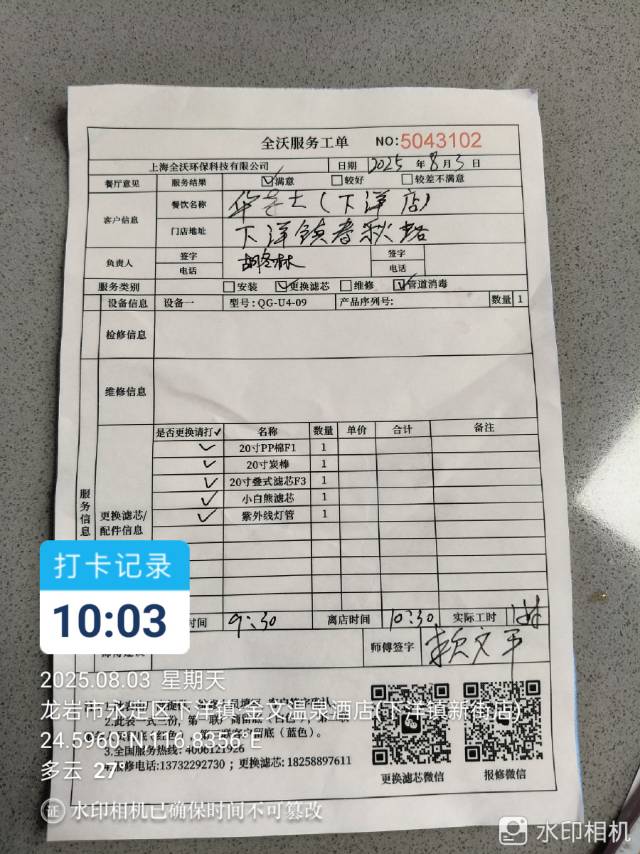 全沃服务工单 NO:5043102
上海全沃环保科技有限公司 日期 2025 年 8 月 3 日
餐厅意见 服务结果 ☑满意 □较好 □较差不满意
客户信息 餐饮名称 华莱士(下洋店)
门店地址 下洋镇春秋路
负责人 签字 胡冬林 签字
电话 电话
服务类别 □安装 ☑更换滤芯 □维修 ☑管道消毒
设备信息 设备一 型号:QG-U4-09 产品序列号: 数量 1
检修信息
维修信息
服务信息
更换滤芯/配件信息
是否更换请打✓ 名称 数量 单价 合计 备注
✓ 20寸PP棉F1 1
✓ 20寸炭棒 1
✓ 20寸叠式滤芯F3 1
✓ 小白熊滤芯 1
✓ 紫外线灯管 1
打卡记录
10:03
时间 9:30 离店时间 10:30 实际工时
师傅签字 赖文平
2025.08.03 星期天
龙岩市永定区下洋镇·金文温泉酒店(下洋镇新街店)
24.5960°N,116.8356°E
多云 27°
3.全国服务热线:4006123926
4.报修电话:13732292730；更换滤芯:18258897611
更换滤芯微信 报修微信
证 水印相机已确保时间不可篡改
水印相机